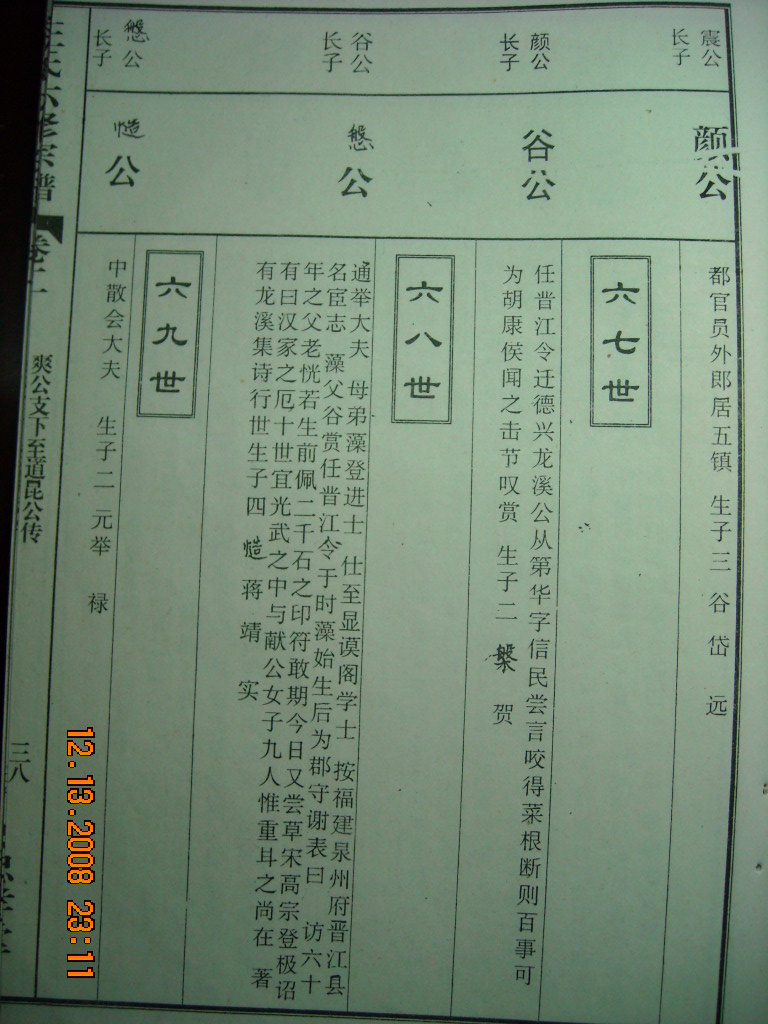 震公
长子
颜公
都官员外郎居五镇 生子三 谷 岱 远
六七世
颜公
长子
谷公
任晋江令迁德兴龙溪公从第华字信民尝言咬得菜根断则百事可
为胡康侯闻之击节叹赏 生子二 槃 贺
六八世
谷公
长子
慇公
通举大夫 母弟藻登进士 仕至显谟阁学士 按福建泉州府晋江县
名宦志 藻父谷赏任晋江令于时藻始生后为郡守谢表曰 访六十
年之父老恍若生前佩二千石之印符敢期今日又尝草宋高宗登极诏
有曰汉家之厄十世宜光武之中与献公女子九人惟重耳之尚在 著
有龙溪集诗行世生子四 慥 蒋 靖 实
六九世
公
长子
慥公
中散会大夫 生子二 元举 禄
氏六修宗谱
卷二
爽公支下至道昆公传
三八
12.13.2008 23:11